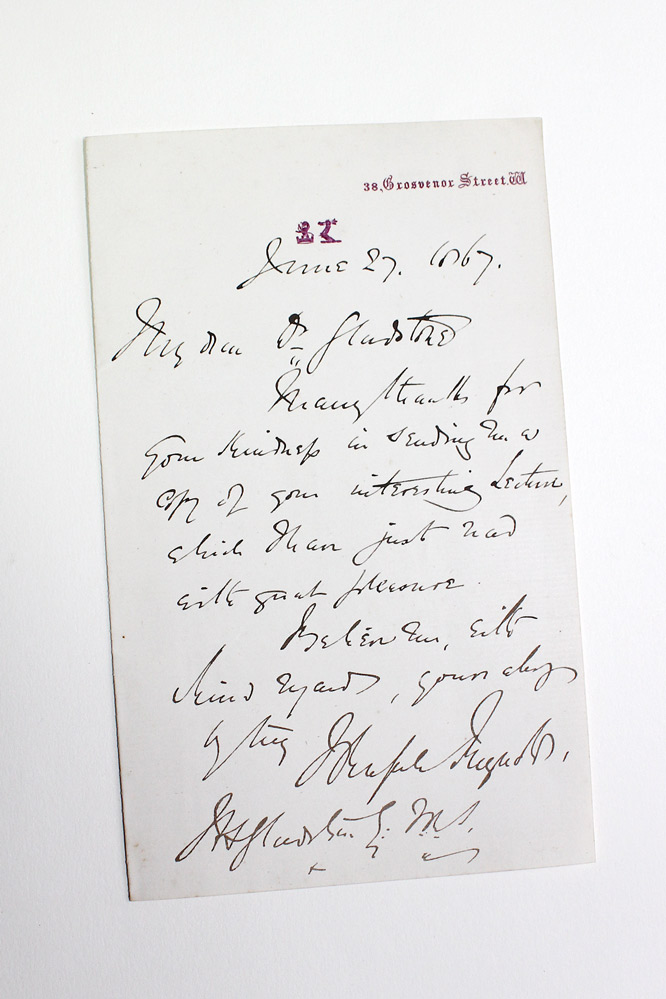 38, Grosvenor Street. W
June 27. 1867.
My dear Dr. Gladstone
Many thanks for
your kindness in sending me a
copy of your interesting Lecture,
which I have just read
with great pleasure.
Believe me, with
kind regards, yours always
truly J Reynolds.
J H Gladstone Esq.